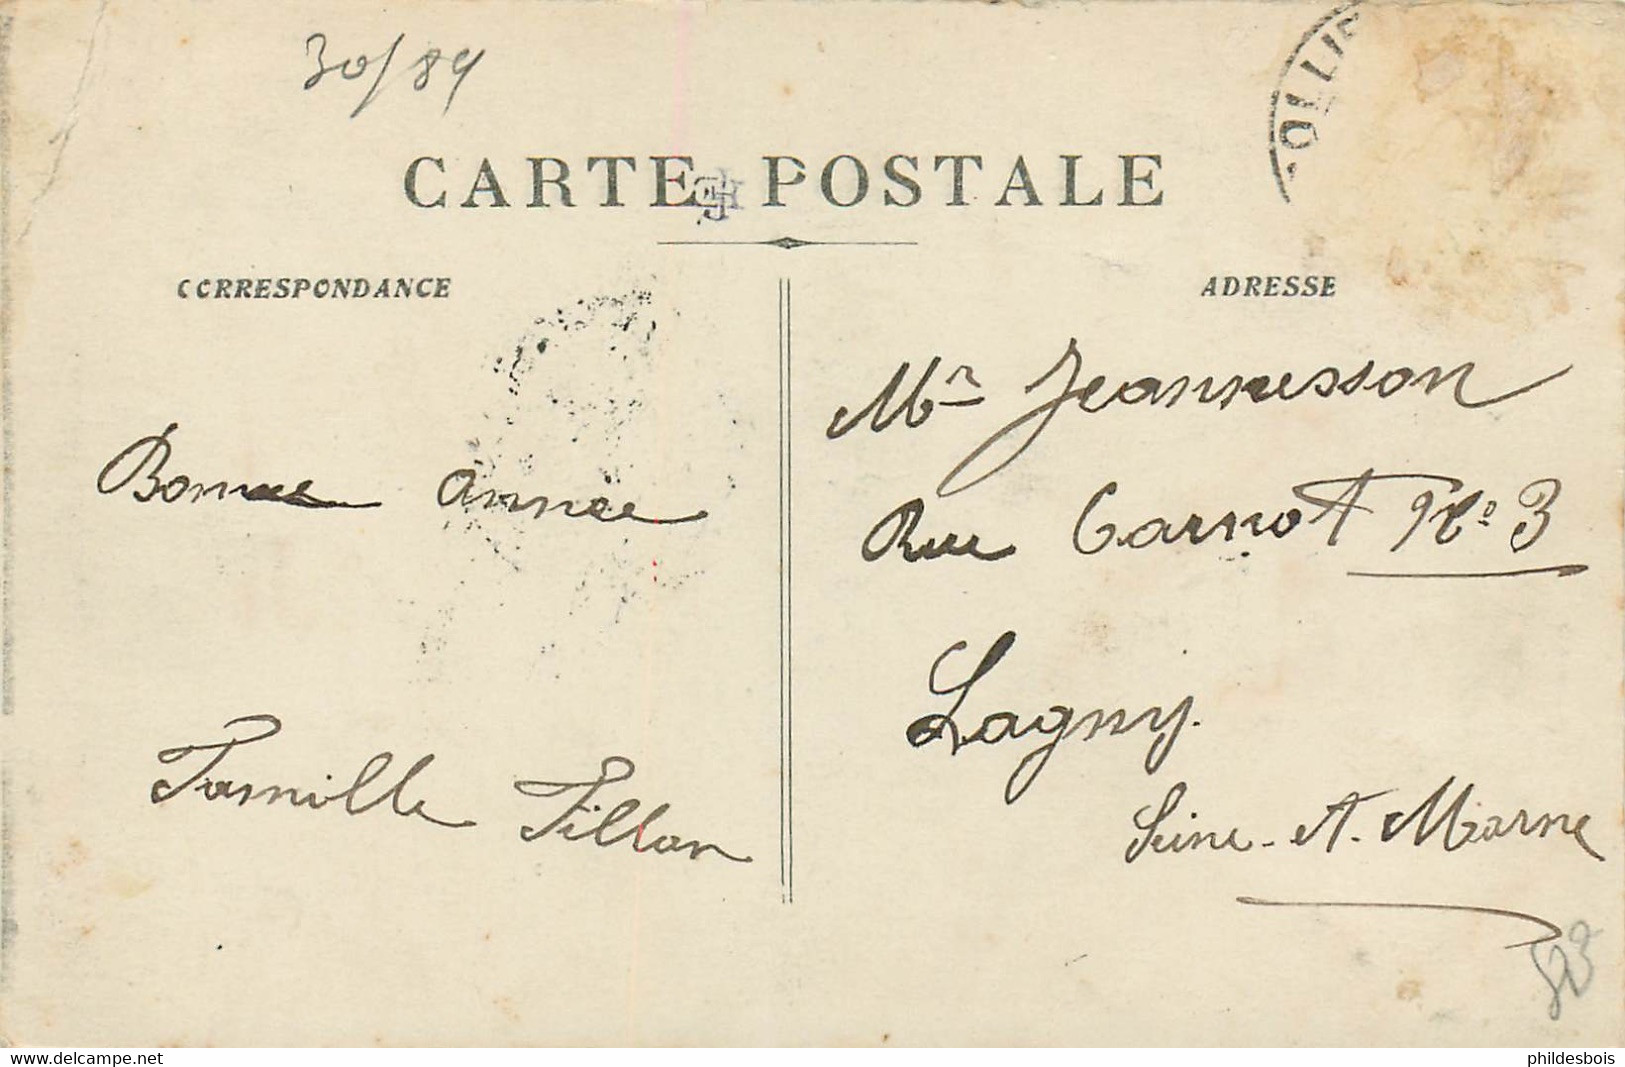 30/84
OLLIE
CARTE POSTALE
CORRESPONDANCE
ADRESSE
Bonne année
Famille Fillon
Mr Jeannesson
Rue Carnot No 3
Lagny.
Seine-et-Marne
www.delcampe.net
phildesbois